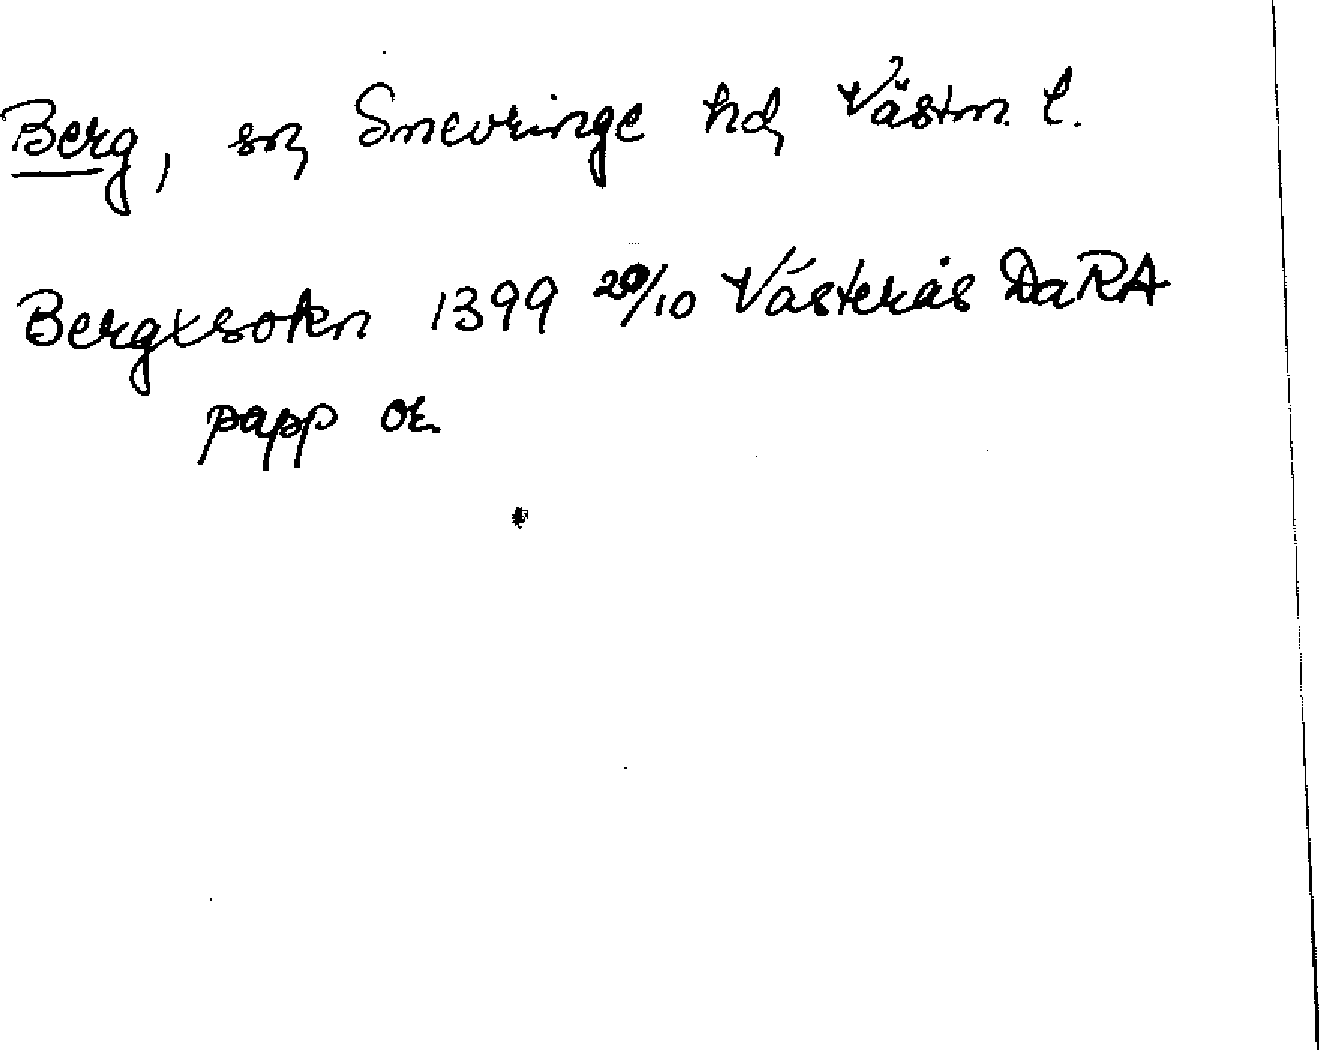 Berg, sn Snevringe hd Västm. l.
Bergxsokn 1399 20/10 Västerås DaRA
papp or.